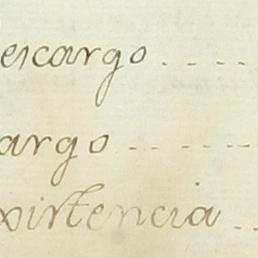 escargo ....
argo ......
xistencia ..